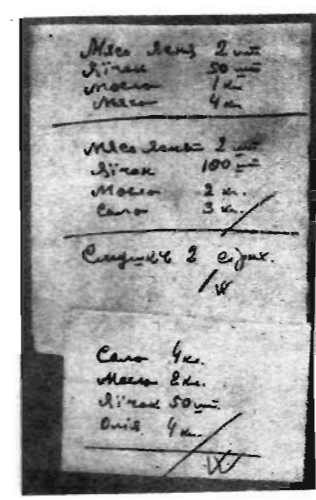 Мясо Яєня 2 шт
Яїчок 50 шт
Масло 1 кг
Мясо 4 кг
Мясо 2 шт
Яїчок 100 шт
Масло 2 кг.
Сало 3 кг.
2
Сало 4 кг.
Масло 2 кг.
Яїчок 50 шт.
Олія 4 кг.